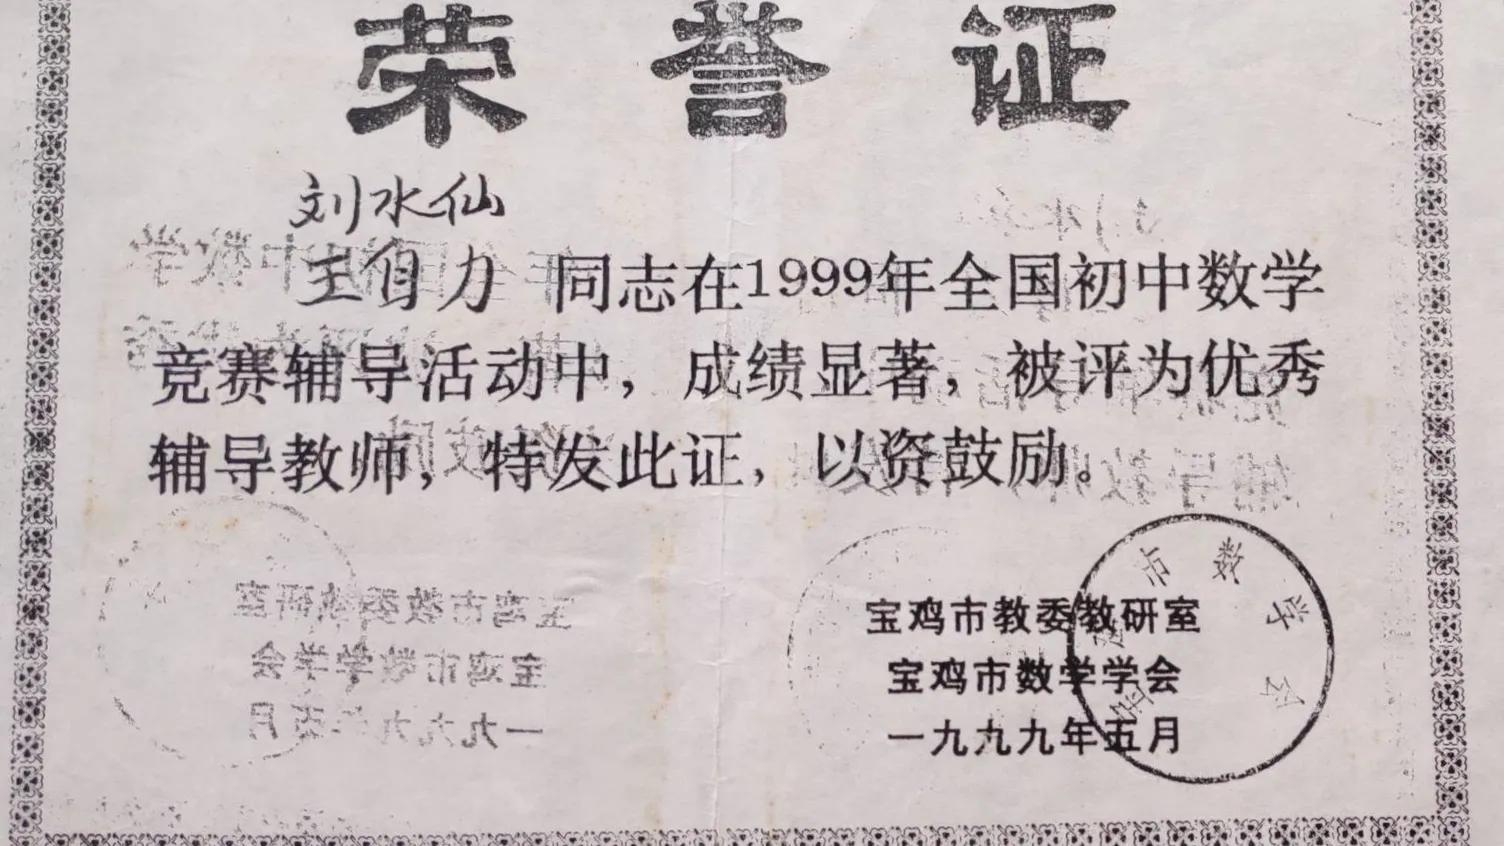 荣誉证
刘水仙
王自力 同志在1999年全国初中数学
竞赛辅导活动中，成绩显著，被评为优秀
辅导教师，特发此证，以资鼓励。
宝鸡市教委教研室
宝鸡市数学学会
一九九九年五月
市数学会